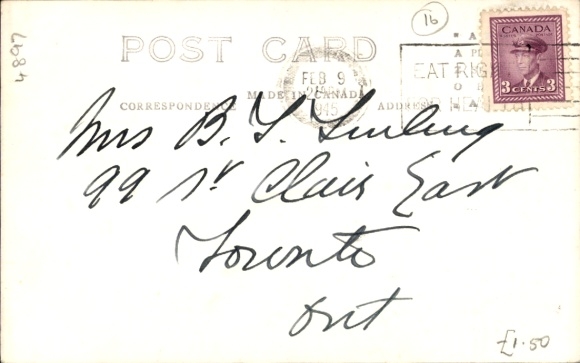 4897
16
POST CARD
CANADA
POSTES POSTAGE
3 CENTS 3
FEB 9
1945
EAT RIG
CORRESPONDENCE MADE IN CANADA ADDRESS
Mrs B. L.
99 St Clair East
Toronto
Ont
£1.50